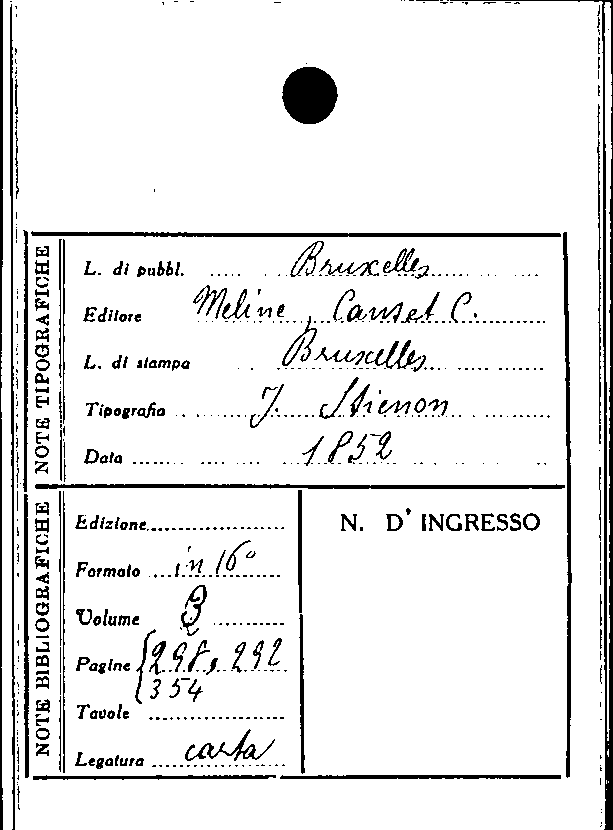 NOTE TIPOGRAFICHE
L. di pubbl. Bruxelles
Editore Meline, Canset C.
L. di stampa Bruxelles
Tipografia J. Stienon
Data 1852
NOTE BIBLIOGRAFICHE
Edizione
Formato in 16°
Volume 3
Pagine 298, 292
354
Tavole
Legatura carta
N. D' INGRESSO